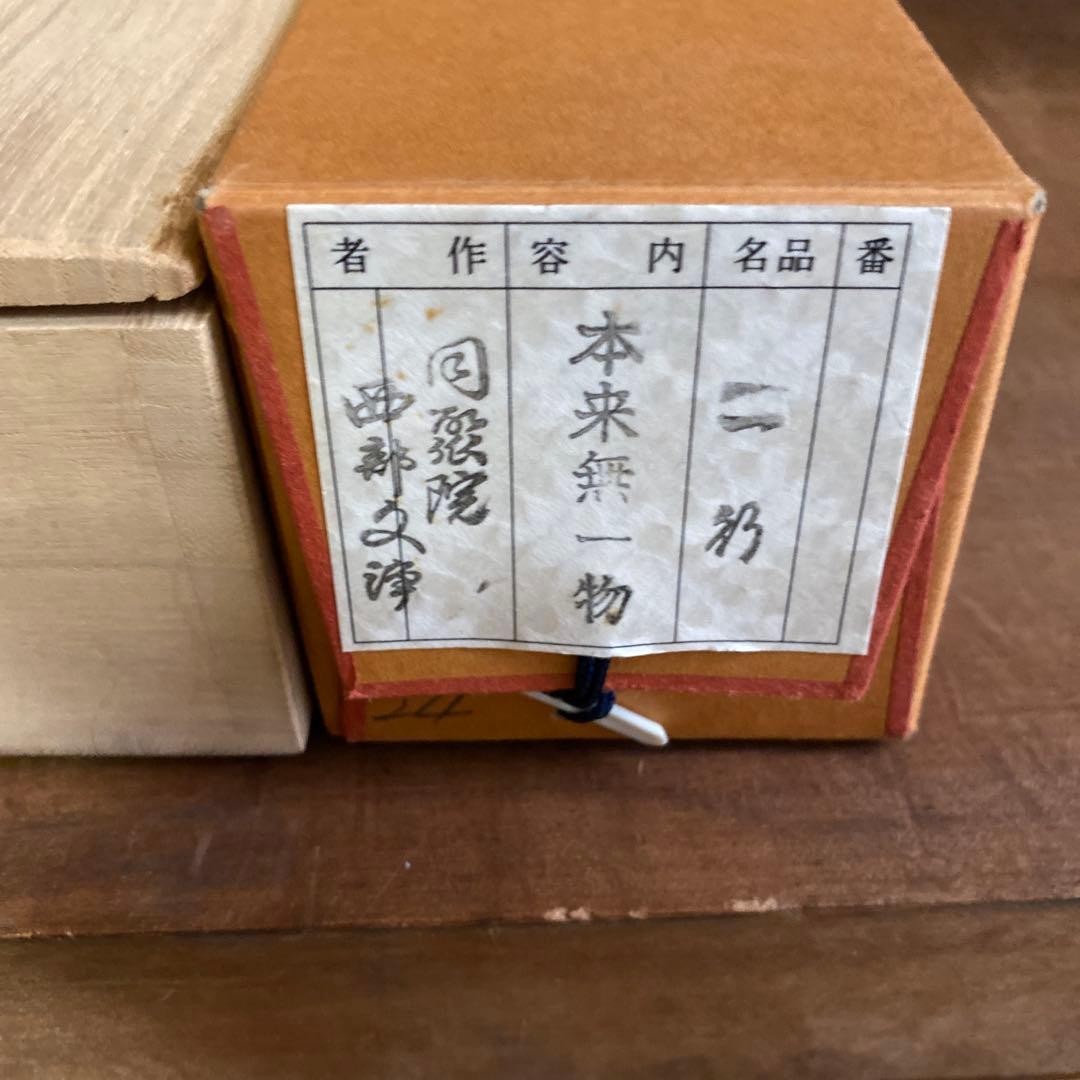 番
品名
二行
内容
本来無一物
作者
同聚院
西部文浄
24